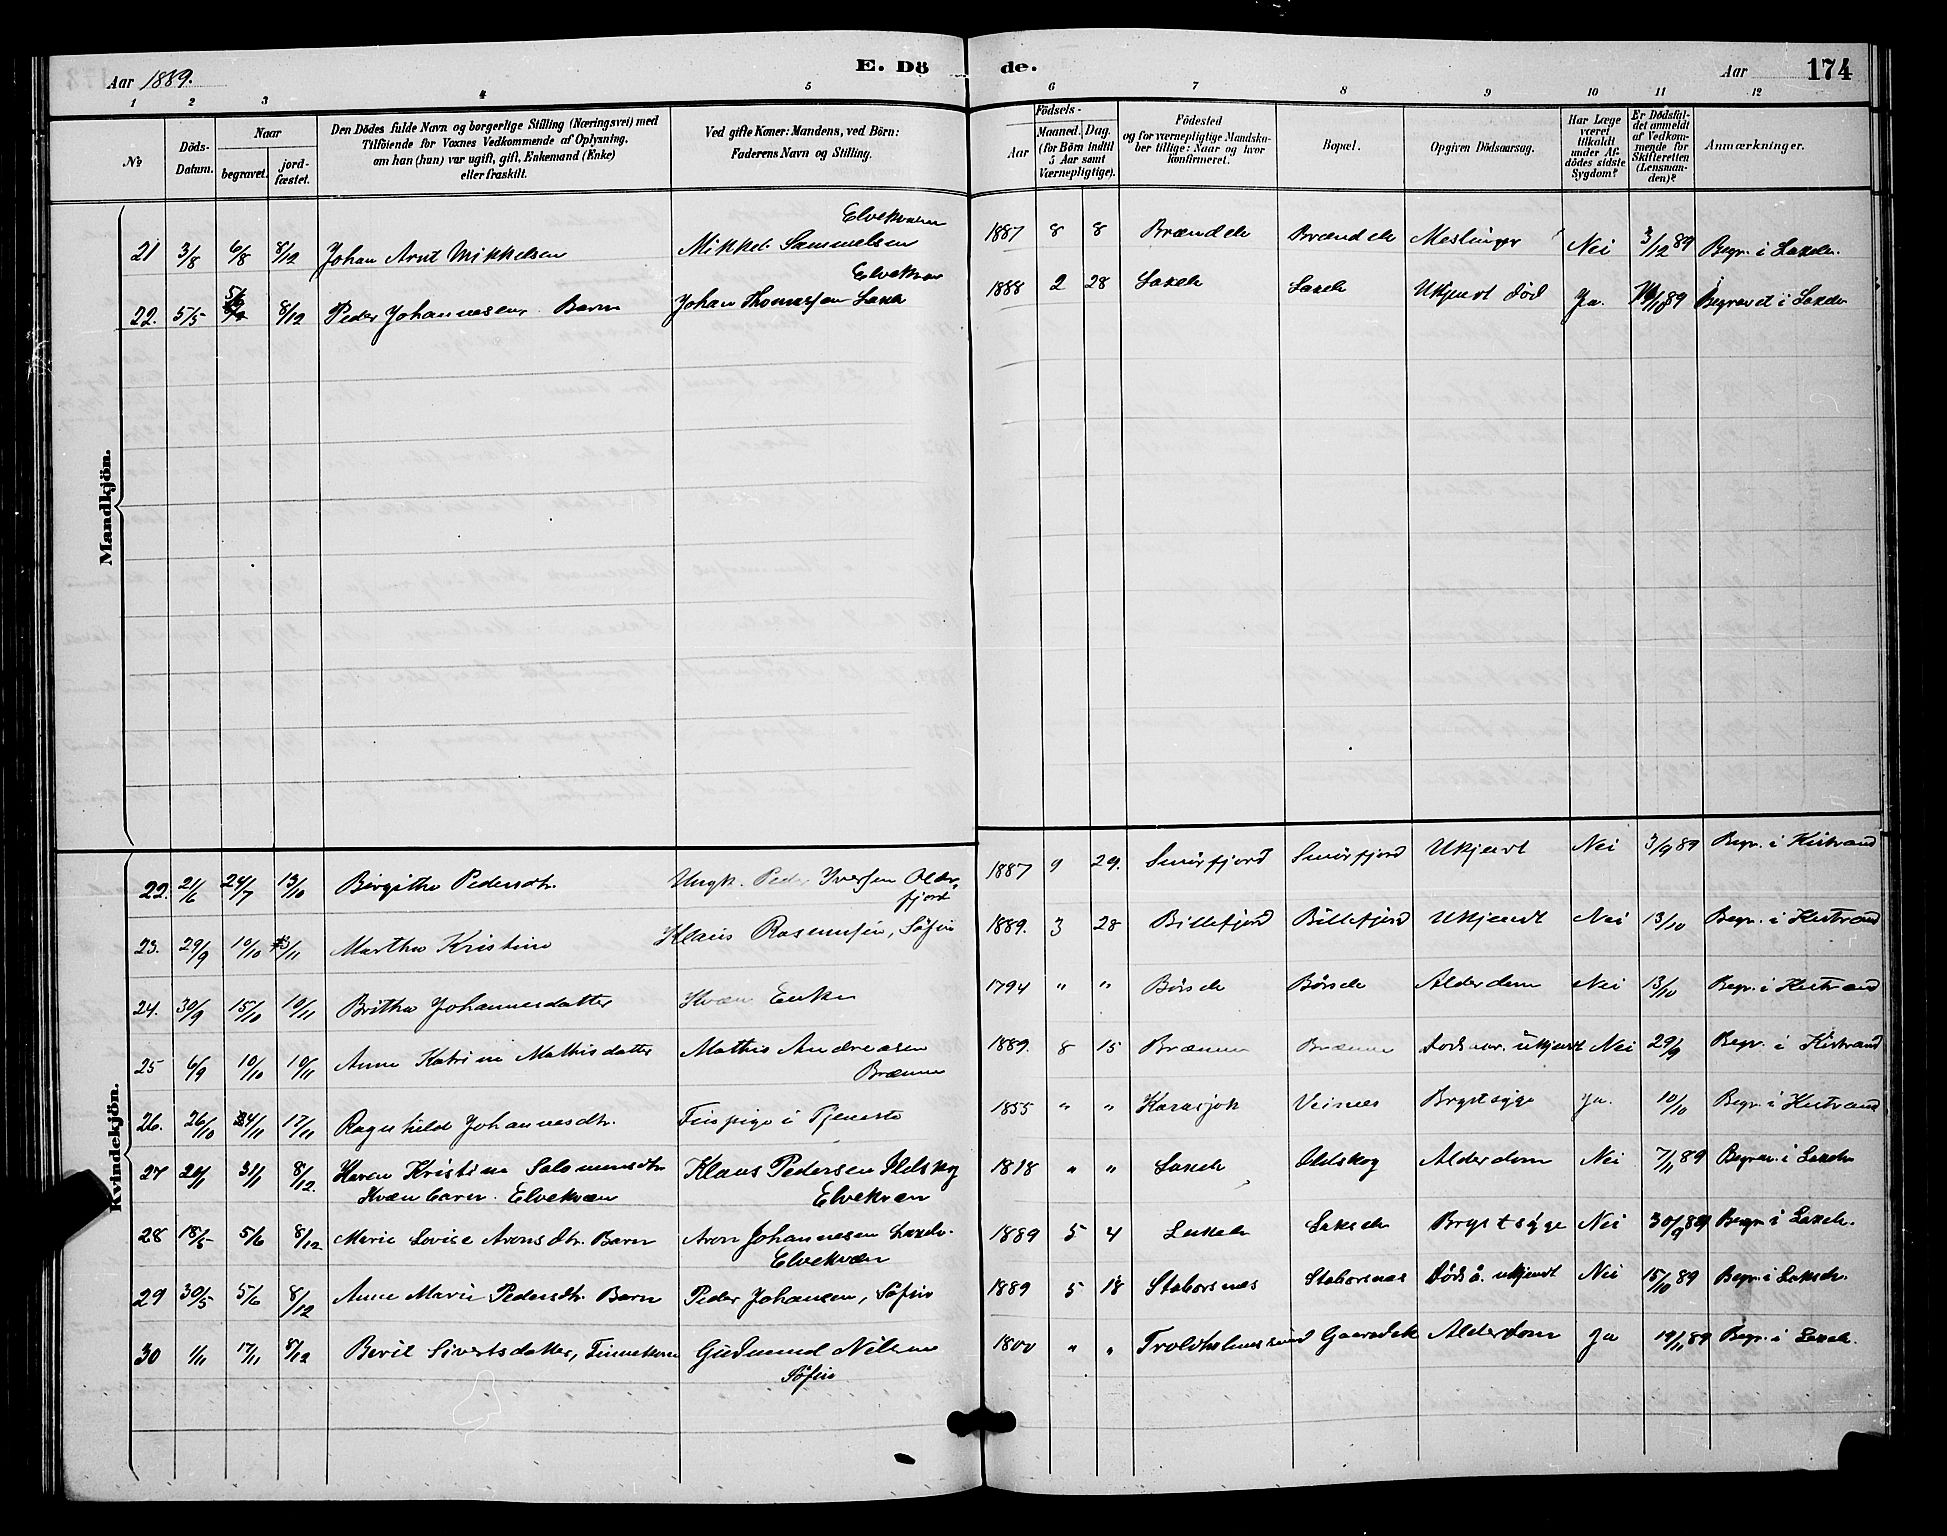 Aar 1889. E. Dö de. Aar 174
1 2 3 4 5 6 7 8 9 10 11 12
No
Döds-Datum.
Naar
begravet.
jord-fæstet.
Den Dödes fulde Navn og borgerlige Stilling (Næringsvei) med
Tilföiende for Voxnes Vedkommende af Oplysning.
om han (hun) var ugift, gift, Enkemand (Enke)
eller fraskilt.
Ved gifte Koner: Mandens, ved Börn:
Faderens Navn og Stilling.
Födsels-
Aar
Maaned. Dag.
(for Börn indtil
5 Aar samt
Værnepligtige).
Födested
og for værnepligtige Mandska-
ber tillige: Naar og hvor
konfirmeret.
Bopæl.
Opgiven Dödsaarsag.
Har Læge
været
tilkaldt
under Af-
dödes sidste
Sygdom?
Er Dödsfal-
det anmeldt
af Vedkom-
mende for
Skifteretten
(Lensman-
den)?
Anmærkninger.
Mandkjön.
Elvekvæn
21 3/8 6/8 8/12 Johan Arnt Mikkelsen Mikkel Sammelsen 1887 8 8 Brændelv Brændelv Meslinger Nei 3/12 89 Begr. i Laxelv.
Elvekvæn
22. 5/5 8/12 Peder Johannesen Barn Johan Thomassen Laxelv 1888 2 28 Laxelv Laxelv Ukjendt død Ja. 89 Begravet i Laxelv
Kvindekjön.
22. 21/6 24/7 13/10 Birgitha Pedersdtr. Ungk. Peder Iversen Older- 1887 9 29. Smørfjord Smørfjord Ukjendt Nei 3/9 89 Begr. i Kistrand
fjord
23. 29/9 10/10 Martha Kristine Klaus Rasmussen, Søfin 1889. 3 28 Billefjord Billefjord Ukjendt Nei 13/10 Begr. i Kistrand
24. 30/9 15/10 10/11 Britha Johannesdatter Kvæn Enke 1794 " " Børselv Børselv Alderdom Nei 13/10 Begr. i Kistrand
25 6/9 10/10 10/11 Anne Katrine Mathisdatter Mathis Andreasen 1889. 8 15 Brænne Brænne Dødsaar. ukjendt Nei 29/9 Begr. i Kistrand
Brænne
26. 26/10 4/11 17/11 Ragnhilde Johannesdtr. Finpige i Tjeneste 1855 " " Karasjok Veines Brystsyge Ja. 10/10 Begr. i Kistrand
27 24/1 31/1 8/12. Karen Kristine Salomonsdtr Klaus Pedersen Ildskog 1818 " " Laxelv Ildskog Alderdom Nei 7/1 89 Begrav. i Laxelv
Kvæn Elvekvæn Elvekvæn
28 18/5 5/6 8/12 Marie Lovise Aronsdtr. Barn Aron Johannesen Laxelv. 1889 5 4 Laxelv Lakselv Brystsyge Nei 30/9 89 Begr. i Laxelv.
Elvekvæn
29 30/5 5/6 8/12 Anne Marie Pedersdtr. Barn Peder Johansen, Søfin 1889 5 18 Staborsnes Staborsnes Døds å. ukjendt Nei 15/10 89 Begr. i Lakselv.
30 1/11 17/11 8/12 Berit Sivertsdatter, Finnekone Gudmund Nilsen 1800 " " Troldholmsund Alderdom Ja 19/11 89 Begr. i Laxelv.
Søfin